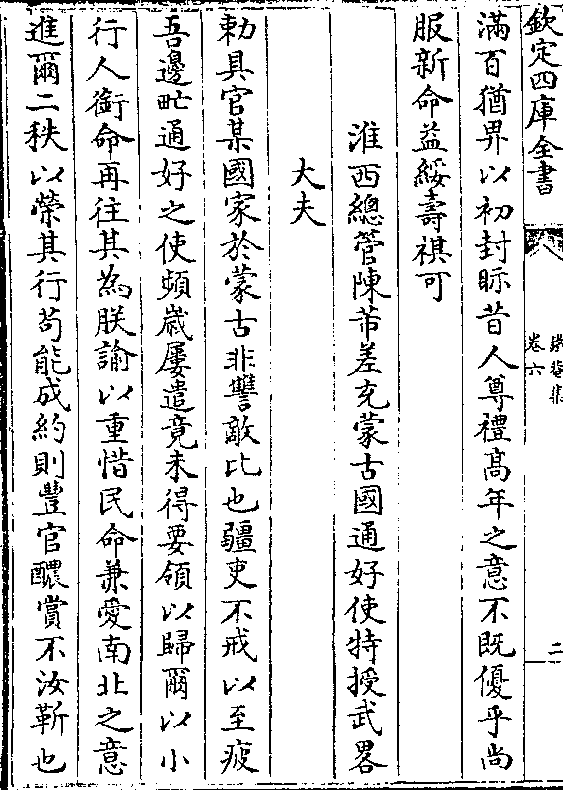 欽定四庫全書
卷六
二
滿百猶畀以初封眎昔人尊禮髙年之意不既優乎尚
服新命益綏壽祺可
淮西總管陳芾差充蒙古國通好使特授武畧
大夫
勅具官某國家於蒙古非讐敵比也疆吏不戒以至疲
吾邊甿通好之使頻歲屢遣竟未得要領以歸爾以小
行人銜命再往其為朕諭以重惜民命兼愛南北之意
進爾二秩以榮其行苟能成約則豐官醲賞不汝靳也